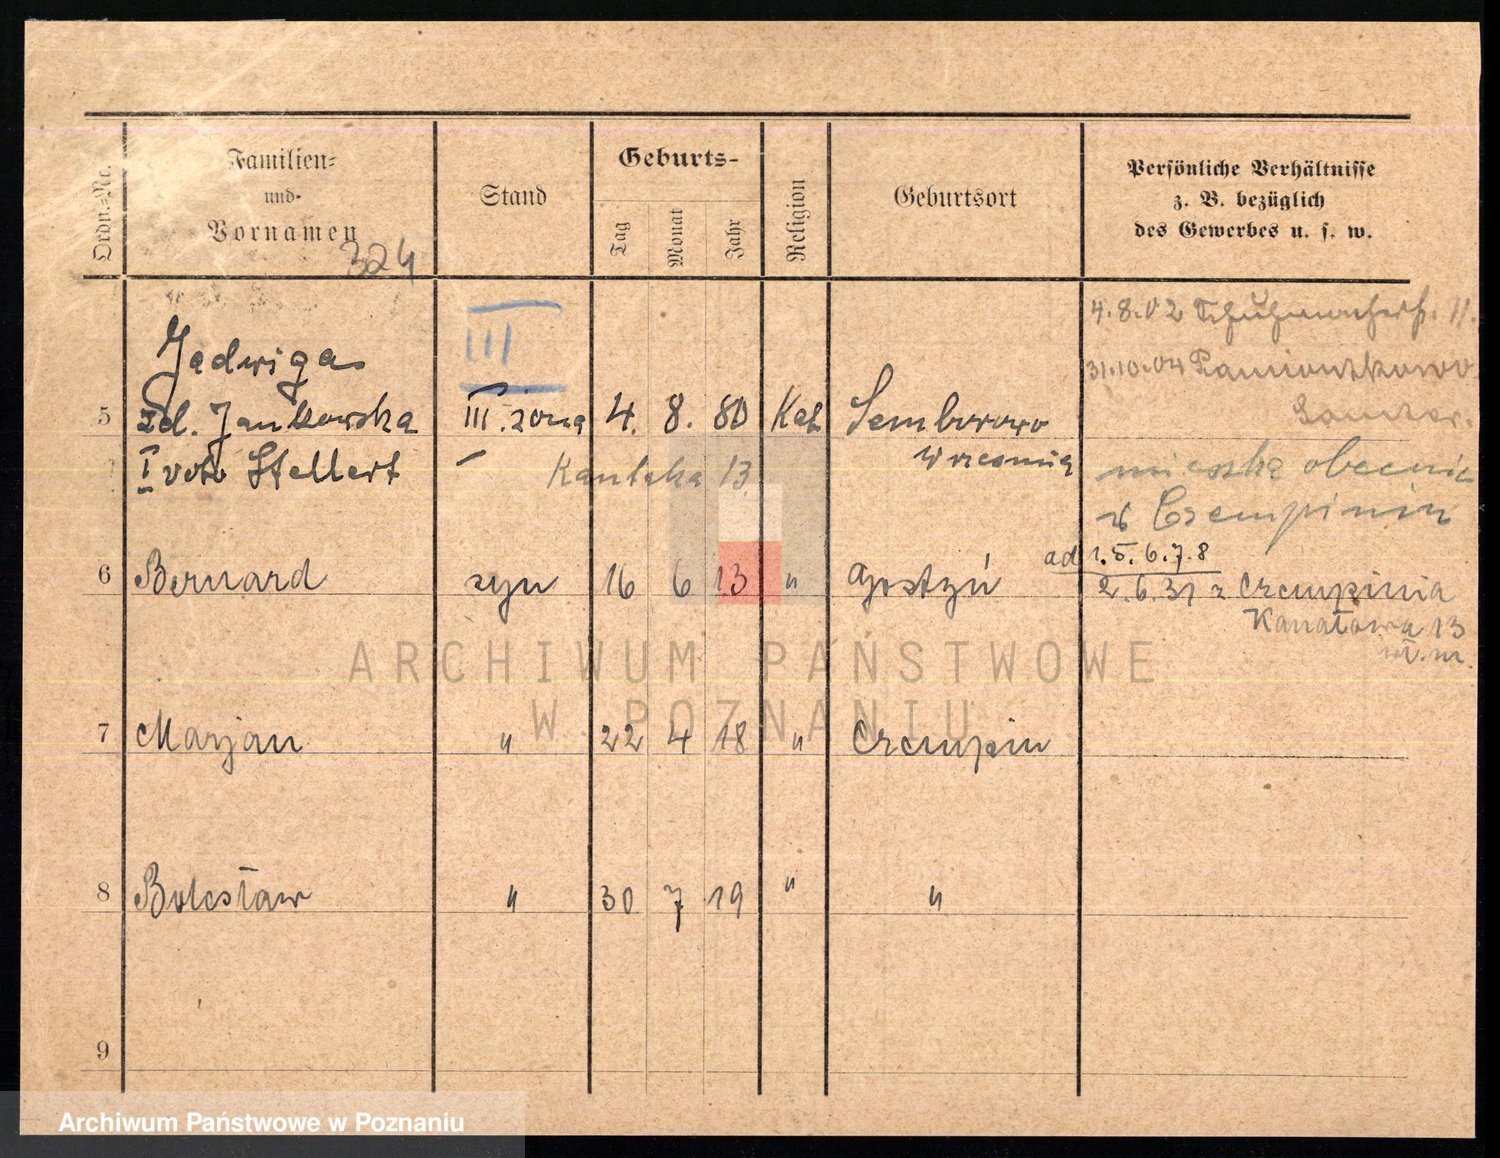 Ordn.-Nr.
Familien-
und-
Vornamen
324
Stand
Geburts-
Tag
Monat
Jahr
Religion
Geburtsort
Persönliche Verhältnisse
z. B. bezüglich
des Gewerbes u. s. w.
4.8.02
III
Jadwiga
31.10.04
5 zd. Jankowska III. żona 4. 8. 80 Kat Semborowo
I voto Stellert
Września
Kantaka 13
mieszka obecnie
w Czempiniu
ad 1.5.6.7.8
6 Bernard syn 16 6 13 " Gostyń
2.6.31 z Czempinia
Kanałowa 13
ARCHIWUM PAŃSTWOWE
W POZNANIU
7 Marjan " 22 4 18 " Czempin
8 Bolesław " 30 7 19 " "
9
Archiwum Państwowe w Poznaniu